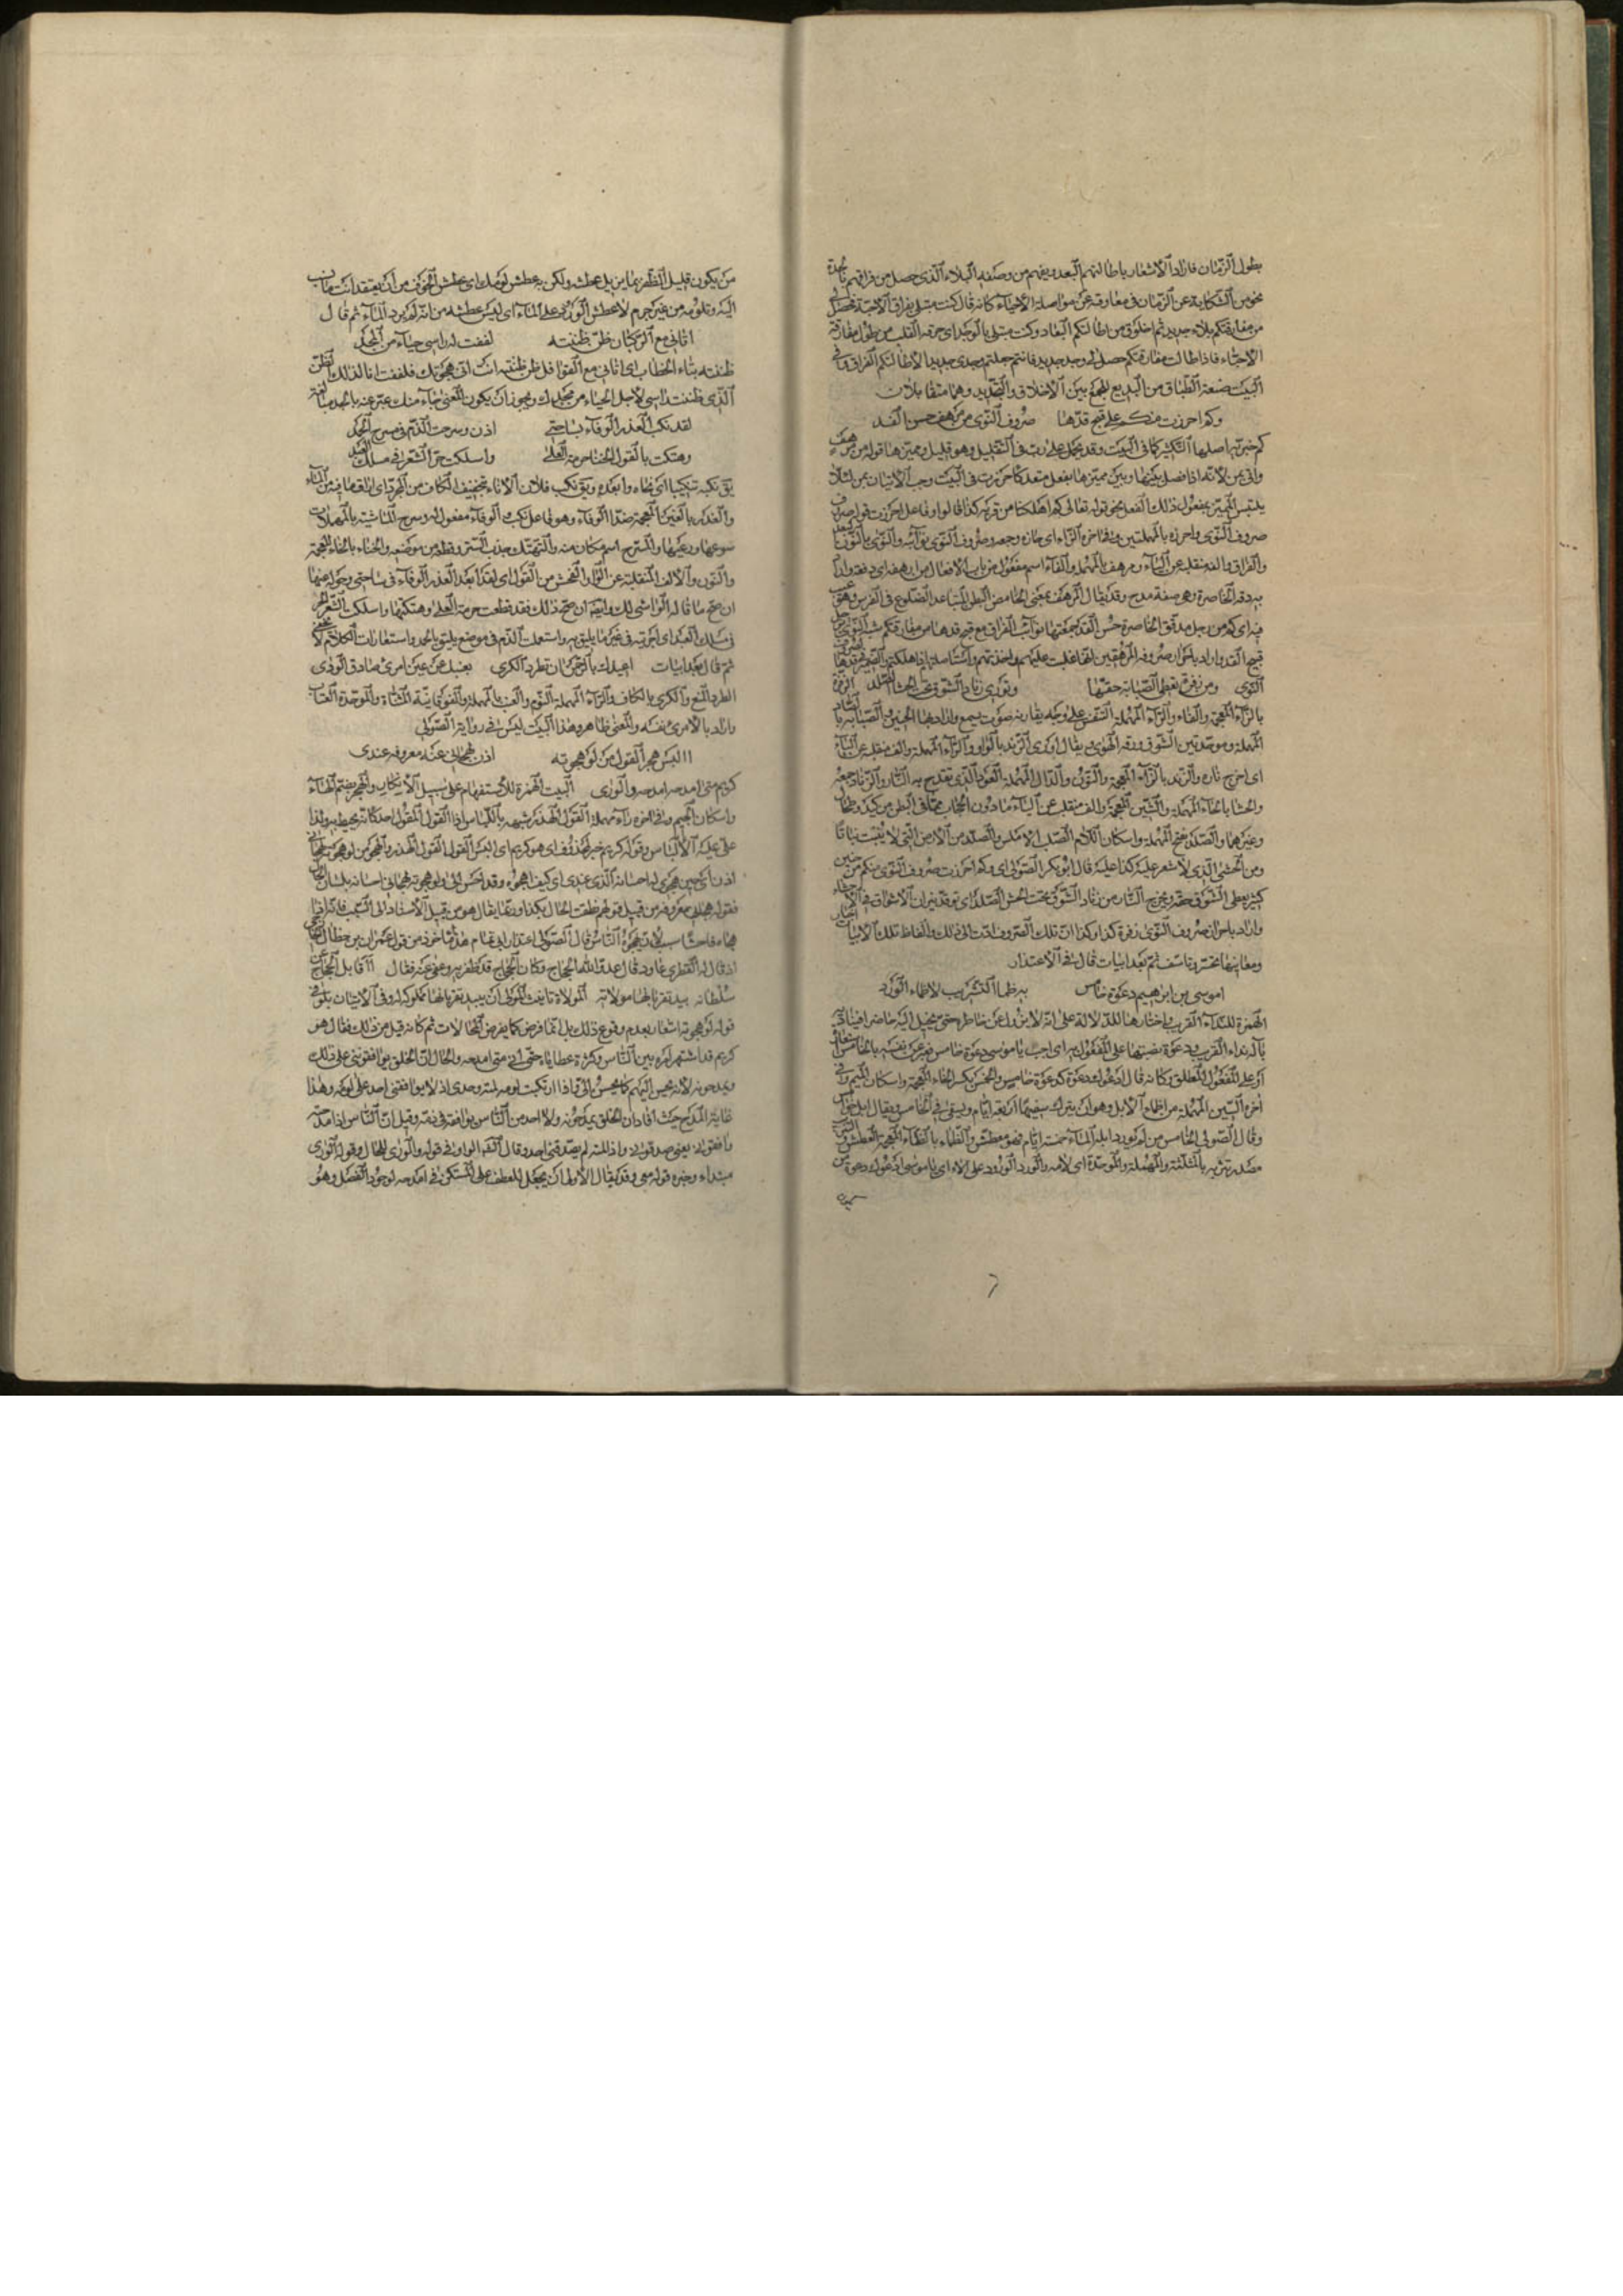 بطول الزمان فاراد الاشعار باطالتهم البعد ويفهم من وصفه البلاء الذى حصل من فراقهم بالجدة
نحو من الشكاية عن الزمان فى مفارقته عن مواصلة الاحباء كانه قال كنت مبتلى بفراق الاحبة فحصل لى
من مفارقتكم بلاء جديد ثم اخلوق من اطالتكم البعاد وكنت مبتلى بالوجد اى حرقة القلب من طول مفارقة
الاحباء فاذا طالت مفارقتكم حصل لى وجد جديد فانتم جعلتم وجدى جديدا لاطالتكم الفراق وفى
البيت صنعة الطباق من البديع للجمع بين الاخلاق والتجديد وهما متقابلان
وكم احرزت منكم على قبح قدها صروف النوى من مرهف حسن القد
كم خبرية اصلها التكثير كما فى البيت وقد يحمل على رب فى التقليل وهو قليل ومميزها قوله من مرهف
واتى بمن لانه اذا فصل بينها وبين مميزها بفعل متعد كاحرزت فى البيت وجب الاتيان بمن لئلا
يلتبس المميز بمفعول ذلك الفعل نحو قوله تعالى كم اهلكنا من قرية كذا قالوا وفاعل احرزت قوله صروف
صروف النوى واحرزه بالمهملتين وفى اخره الزاء اى حازه وجمعه وصروف النوى نوائبه والنوى بالنون البعد
والفراق والفه منقلبة عن الياء ومرهف بالمهملة والفاء اسم مفعول من باب الافعال من ارهفه اى دققه واراد
به دقة الخاصرة وهى صفة مدح وقد يقال المرهف بمعنى الخامص البطن المتباعد الضلوع فى الفرس وهو عيب
فيه اى كم من رجل مدقق الخاصرة حسن القد جمعتها نوائب الفراق مع قبح قدها من مفارقتكم شبه النوى برجل
قبيح القد واراد باحراز صروفه المرهفين انها غلبت عليهم واخذتهم واستاصلتها فاهلكتهم
النوى ومن زفرة تعطى الصبابة حقها وتورى زناد الشوق تحت الحشا الصلد الزفرة
بالزاء المعجمة والفاء والراء المهملة التنفس على وجه يقارنه صوت يسمع واراد هنا الحنين والصبابة بالصاد
المهملة وموحدتين الشوق ورقة الهوى ويقال اورى الزند بالواو والراء المهملة والف منقلبة عن الياء
اى اخرج ناره والزند بالزاء المعجمة والنون والدال المهملة العود الذى تقدح به النار والزناد جمعه
والحشا بالحاء المهملة والشين المعجمة والف منقلبة عن الياء ما دون الحجاب مما فى البطن من كبد وطحال
وغيرهما والصلد بفتح المهملة واسكان اللام الصلب الاملس والصلد من الارض التى لا ينبت نباتا
ومن الحشى الذى لا شعر عليه كذا عليه قال ابو بكر الصولى اى وكم احرزت صروف النوى منكم من حنين
كثير يعطى الشوق حقه ويخرج النار من زناد الشوق تحت الحشى الصلد اى توقد نيران الاشواق فى الاحشاء
واراد باحراز صروف النوى زفرة كذا وكذا ان تلك الصروف ادت الى ذلك والفاظ تلك الابيات اخبار
ومعانيها تحسر وتاسف ثم بعد ابيات قال فى الاعتذار
اموسى بن ابرهيم دعوة خامس به ظما التثريب لا ظماء الورد
الهمزة للنداء القريب واختارها للدلالة على انه لا يزول عن خاطره حتى يخيل اليه حاضرا فيناديه
بآلة نداء القريب ودعوة نصبتها على المفعول به اى اجب يا موسى دعوة خامس فعبر عن نفسه بالخامس استعارة
او على المفعول المطلق وكانه قال ادعوك دعوة كدعوة خامس والخمس بكسر الخاء المعجمة واسكان الميم وفى
اخره السين المهملة من اظماء الابل وهو ان يترك سقيها اربعة ايام ويسقى فى الخامس ويقال ابل خوامس
وقال الصولى الخامس من لم تورد ابله الماء خمسة ايام فهو معطش والظماء بالظاء المعجمة العطش والتثريب
مصدر ثربه بالمثلثة والمهملة والموحدة اى لامه والورد الورود على الماء اى يا موسى ادعوك دعوة من
من يكون قليل الظفر بما يزيل عطشه ولكن به عطش لومك اى عطش الخوف من ان يعتقد انت مذنب
اليه وتلومه من غير جرم لا عطش الورود على الماء اى ليس عطشه من انه لم يرد الماء ثم قال
اتانى مع الركبان ظن ظننته لففت له راسى حياء من المجد
ظننته بتاء الخطاب اى اتانى مع القوافل ظن ظننته انت انى هجوتك فلففت انا لذلك الظن
الذى ظننته راسى لاجل الحياء من مجدك ويجوز ان يكون المعنى حياء منك عبر عنه بالمجد مبالغة
لقد نكب الغدر الوفاء بساحتى اذن وسرحت الذم فى مسرح الحمد
وهتكت بالقول الخنا حرمة العلى واسلكت حر الشعر فى مسلك العبد
يق نكبه تنكيبا اى نحاه وابعده ويق نكب فلان الاناء بتخفيف الكاف من المجرد اى اراق ما فيه من الماء
والغدر بالغين المعجمة ضد الوفاء وهو فاعل نكب والوفاء مفعوله وسرح الماشية بالمهملات
سومها ورعيها والمسرح اسم مكان منه والتهتك جذب الستر وقطعه من موضعه والخنا بالخاء المعجمة
والنون والالف المنقلبة عن الواو الفحش من القول اى لقد ابعد الغدر الوفاء فى ساحتى وحوله عنها
ان صح ما قاله الواشى لك وايضا ان صح ذلك فقد قطعت حرمة العلى وهتكتها واسلكت الشعر الحر
فى مسلك العبد اى اجريته فى غير ما يليق به واستعملت الذم فى موضع يليق بالحمد واستعارات الكلام لا تخفى
ثم قال بعد ابيات اعيذك بالرحمن ان تطرد الكرى بعتبك عن عين امرئ صادق الود
الطرد المنع والكرى بالكاف والراء المهملة النوم والعتب بالمهملة والفوقانية المثناة والموحدة العتاب
واراد بالامرئ نفسه والمعنى ظاهر وهذا البيت ليس فى رواية الصولى
االبس هجر القول من لو هجوته اذن لهجانى عنه معروفه عندى
كريم متى امدحه امدحه والورى البيت الهمزة للاستفهام على سبيل الانكار والهجر بضم الهاء
واسكان الجيم وفى اخره راء مهملة القول الهذر شبهه باللباس اذا القول المقول احد كانه يحيط به ولذا
على عليه الالباس وقوله كريم خبر محذوف اى هو كريم اى االبس القول الهذر والهجر من لو هجوته لهجانى
اذن اى حين هجوى له احسانه الذى عندى اى كيف اهجوه وقد احسن الى ولو هجوته هجانى احسانه بلسان الحال
فقوله هجانى معروفه من قبيل قولهم نطقت الحال بكذا وربما يقال هو من قبيل الاسناد الى السبب
هجاء فاحشا سببا لان يهجوه الناس قال الصولى اعتذار ابى تمام هذا ماخوذ من قول عمران بن حطان
اذ قال له القطرى عاود قتال عدو الله الحجاج وكان الحجاج قد ظفر به وعفى عنه فقال ااقاتل الحجاج عن
سلطانه بيد تقر بانها مولاته المولاة تانيث المولى اى بيد تقر بانها مملوكة له وفى الاتيان بلو فى
قوله لو هجوته اشعار بعدم وقوع ذلك بل انما فرض كما يفرض المحالات ثم كانه قيل من ذلك فقال هو
كريم قد اشتهر امره بين الناس وكثرة عطاياه حتى انى متى امدحه والحال ان الخلق يوافقوننى على ذلك
ويمدحونه لانه يحسن اليهم كما يحسن الى فاذا ارتكبت لومه لمته وحدى اذ لا يوافقنى احد على لومه وهذا
غاية المدح حيث افاد ان الخلق يمدحونه ولا احد من الناس يوافقه فى ذمه وقيل ان الناس اذا مدحته
وافقونى يعنى صدقونى واذا لمته لم يصدقنى احد وقال القوم الواو فى قوله والورى للحال وقوله الورى
مبتداء وخبره قوله معى وقد يقال الاولى ان يجعل للعطف على المستكن فى امدحه لوجود الفصل وهو